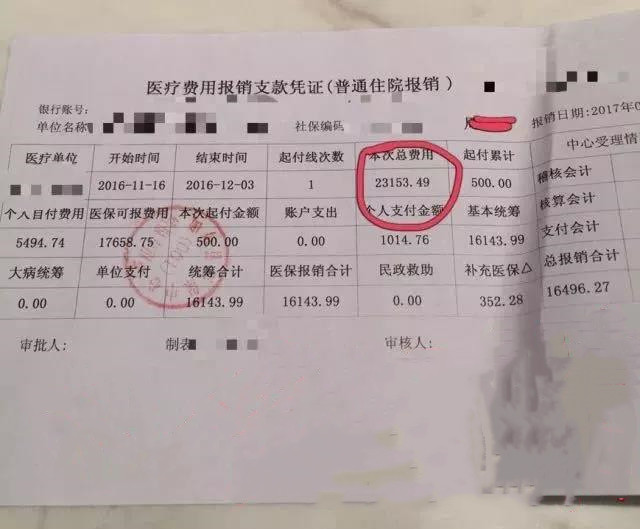 医疗费用报销支款凭证(普通住院报销)
银行账号:
单位名称 社保编码 报销日期:2017年0
医疗单位 开始时间 结束时间 起付线次数 本次总费用 起付累计 中心受理情
2016-11-16 2016-12-03 1 23153.49 500.00 稽核会计
个人自付费用 医保可报费用 本次起付金额 账户支出 个人支付金额 基本统筹 核算会计
5494.74 17658.75 500.00 0.00 1014.76 16143.99 支付会计
大病统筹 单位支付 统筹合计 医保报销合计 民政救助 补充医保△ 总报销合计
0.00 0.00 16143.99 16143.99 0.00 352.28 16496.27
审批人: 制表 审核人: